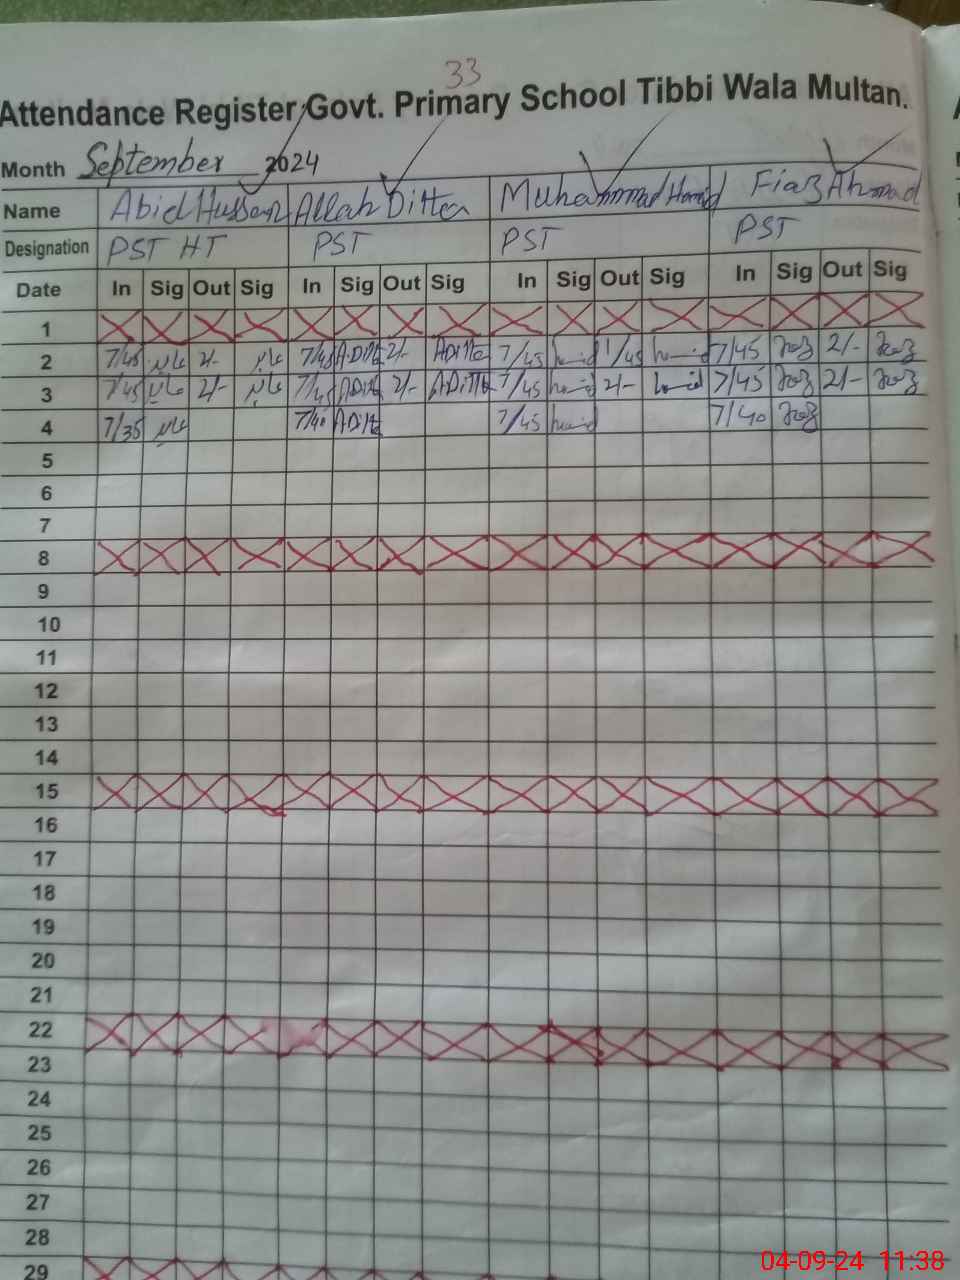 33
Attendance Register Govt. Primary School Tibbi Wala Multan.
Month September 2024
Name Abid Hussan Allah Ditta Muhammad Hamid Fiaz Ahmad
Designation PST HT PST PST PST
Date In Sig Out Sig In Sig Out Sig In Sig Out Sig In Sig Out Sig
1
2 7/45 عابد 2/- عابد 7/45 ADitta 2/- ADitta 7/45 hamid 1/45 hamid 7/45 2/-
3 7/45 عابد 2/- عابد 7/45 ADitta 2/- ADitta 7/45 hamid 2/- hamid 7/45 2/-
4 7/35 عابد 7/40 ADitta 7/45 hamid 7/40
5
6
7
8
9
10
11
12
13
14
15
16
17
18
19
20
21
22
23
24
25
26
27
28
29
04-09-24 11:38